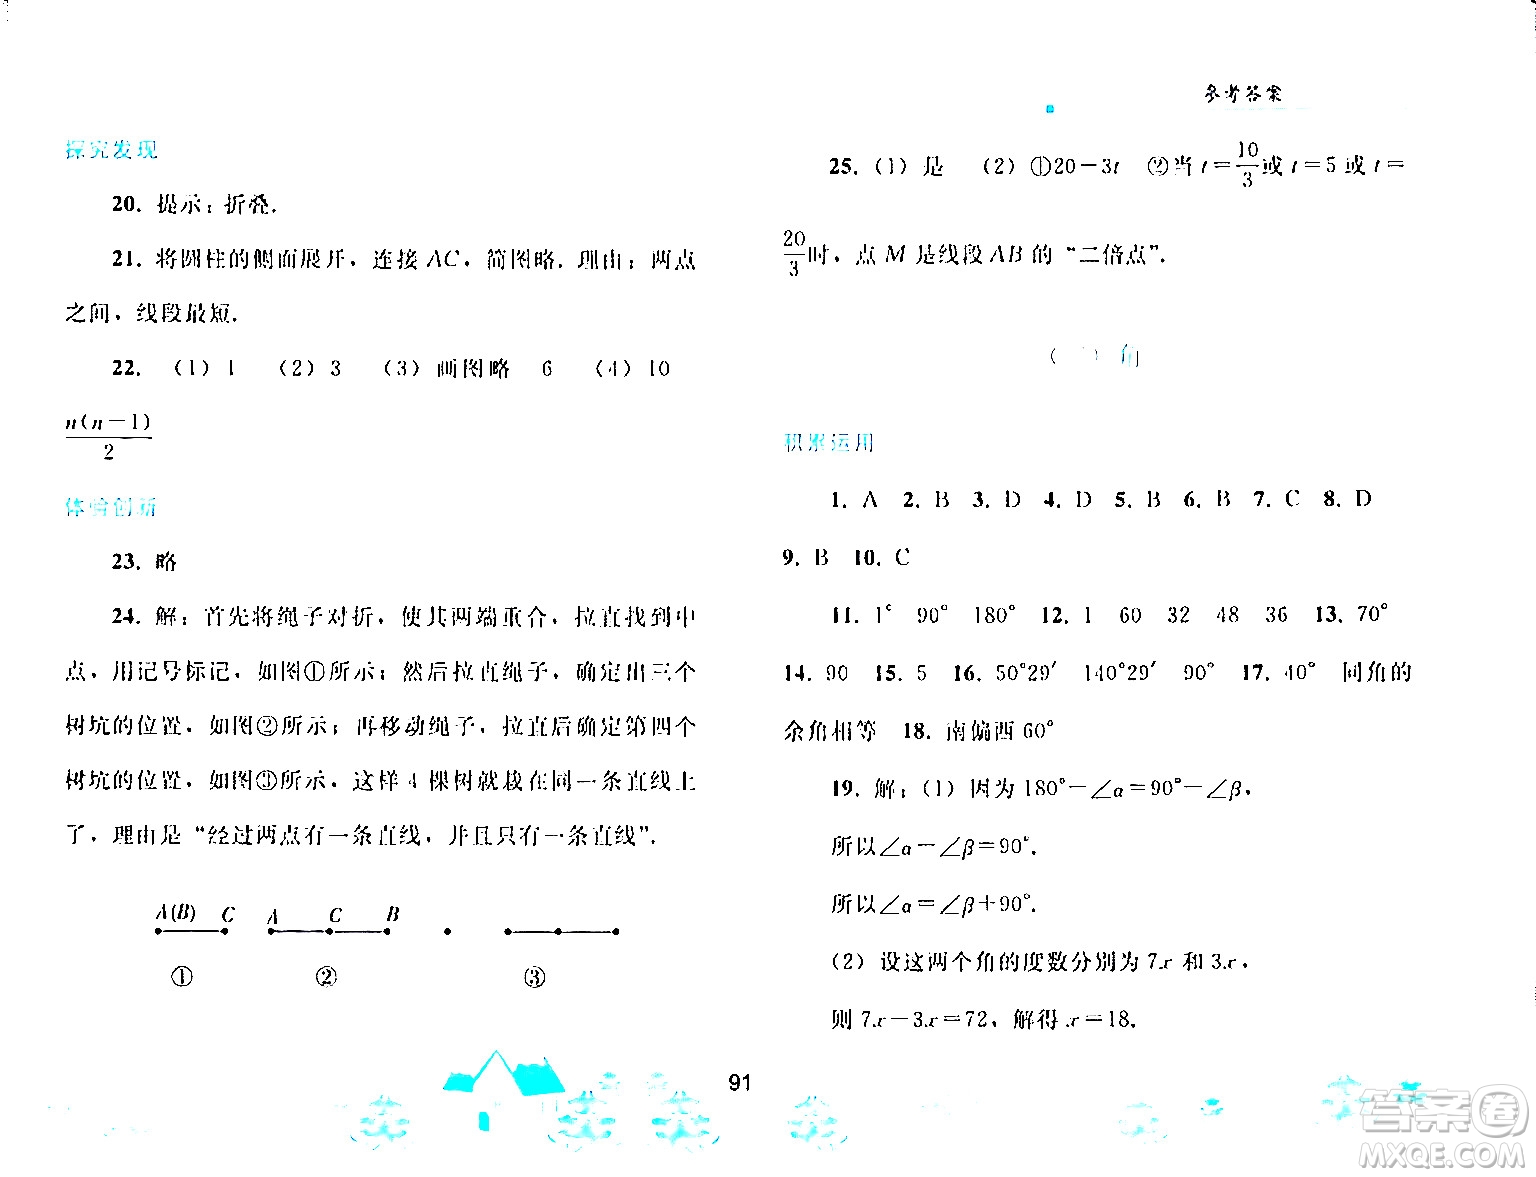 参考答案
探究发现
20. 提示：折叠.
21. 将圆柱的侧面展开，连接 AC，简图略. 理由：两点
之间，线段最短.
22. （1）1 （2）3 （3）画图略 6 （4）10
n(n−1)/2
体验创新
23. 略
24. 解：首先将绳子对折，使其两端重合，拉直找到中
点，用记号标记，如图①所示；然后拉直绳子，确定出三个
树坑的位置，如图②所示；再移动绳子，拉直后确定第四个
树坑的位置，如图③所示，这样 4 棵树就栽在同一条直线上
了，理由是“经过两点有一条直线，并且只有一条直线”.
A(B) C A C B
① ② ③
25. （1）是 （2）①20−3t ②当 t=10/3或 t=5 或 t=
20/3时，点 M 是线段 AB 的“二倍点”.
角
积累运用
1. A 2. B 3. D 4. D 5. B 6. B 7. C 8. D
9. B 10. C
11. 1° 90° 180° 12. 1 60 32 48 36 13. 70°
14. 90 15. 5 16. 50°29′ 140°29′ 90° 17. 40° 同角的
余角相等 18. 南偏西 60°
19. 解：（1）因为 180°−∠α=90°−∠β，
所以∠α−∠β=90°.
所以∠α=∠β+90°.
（2）设这两个角的度数分别为 7x 和 3x，
则 7x−3x=72，解得 x=18.
91
答案圈
MXQE.COM